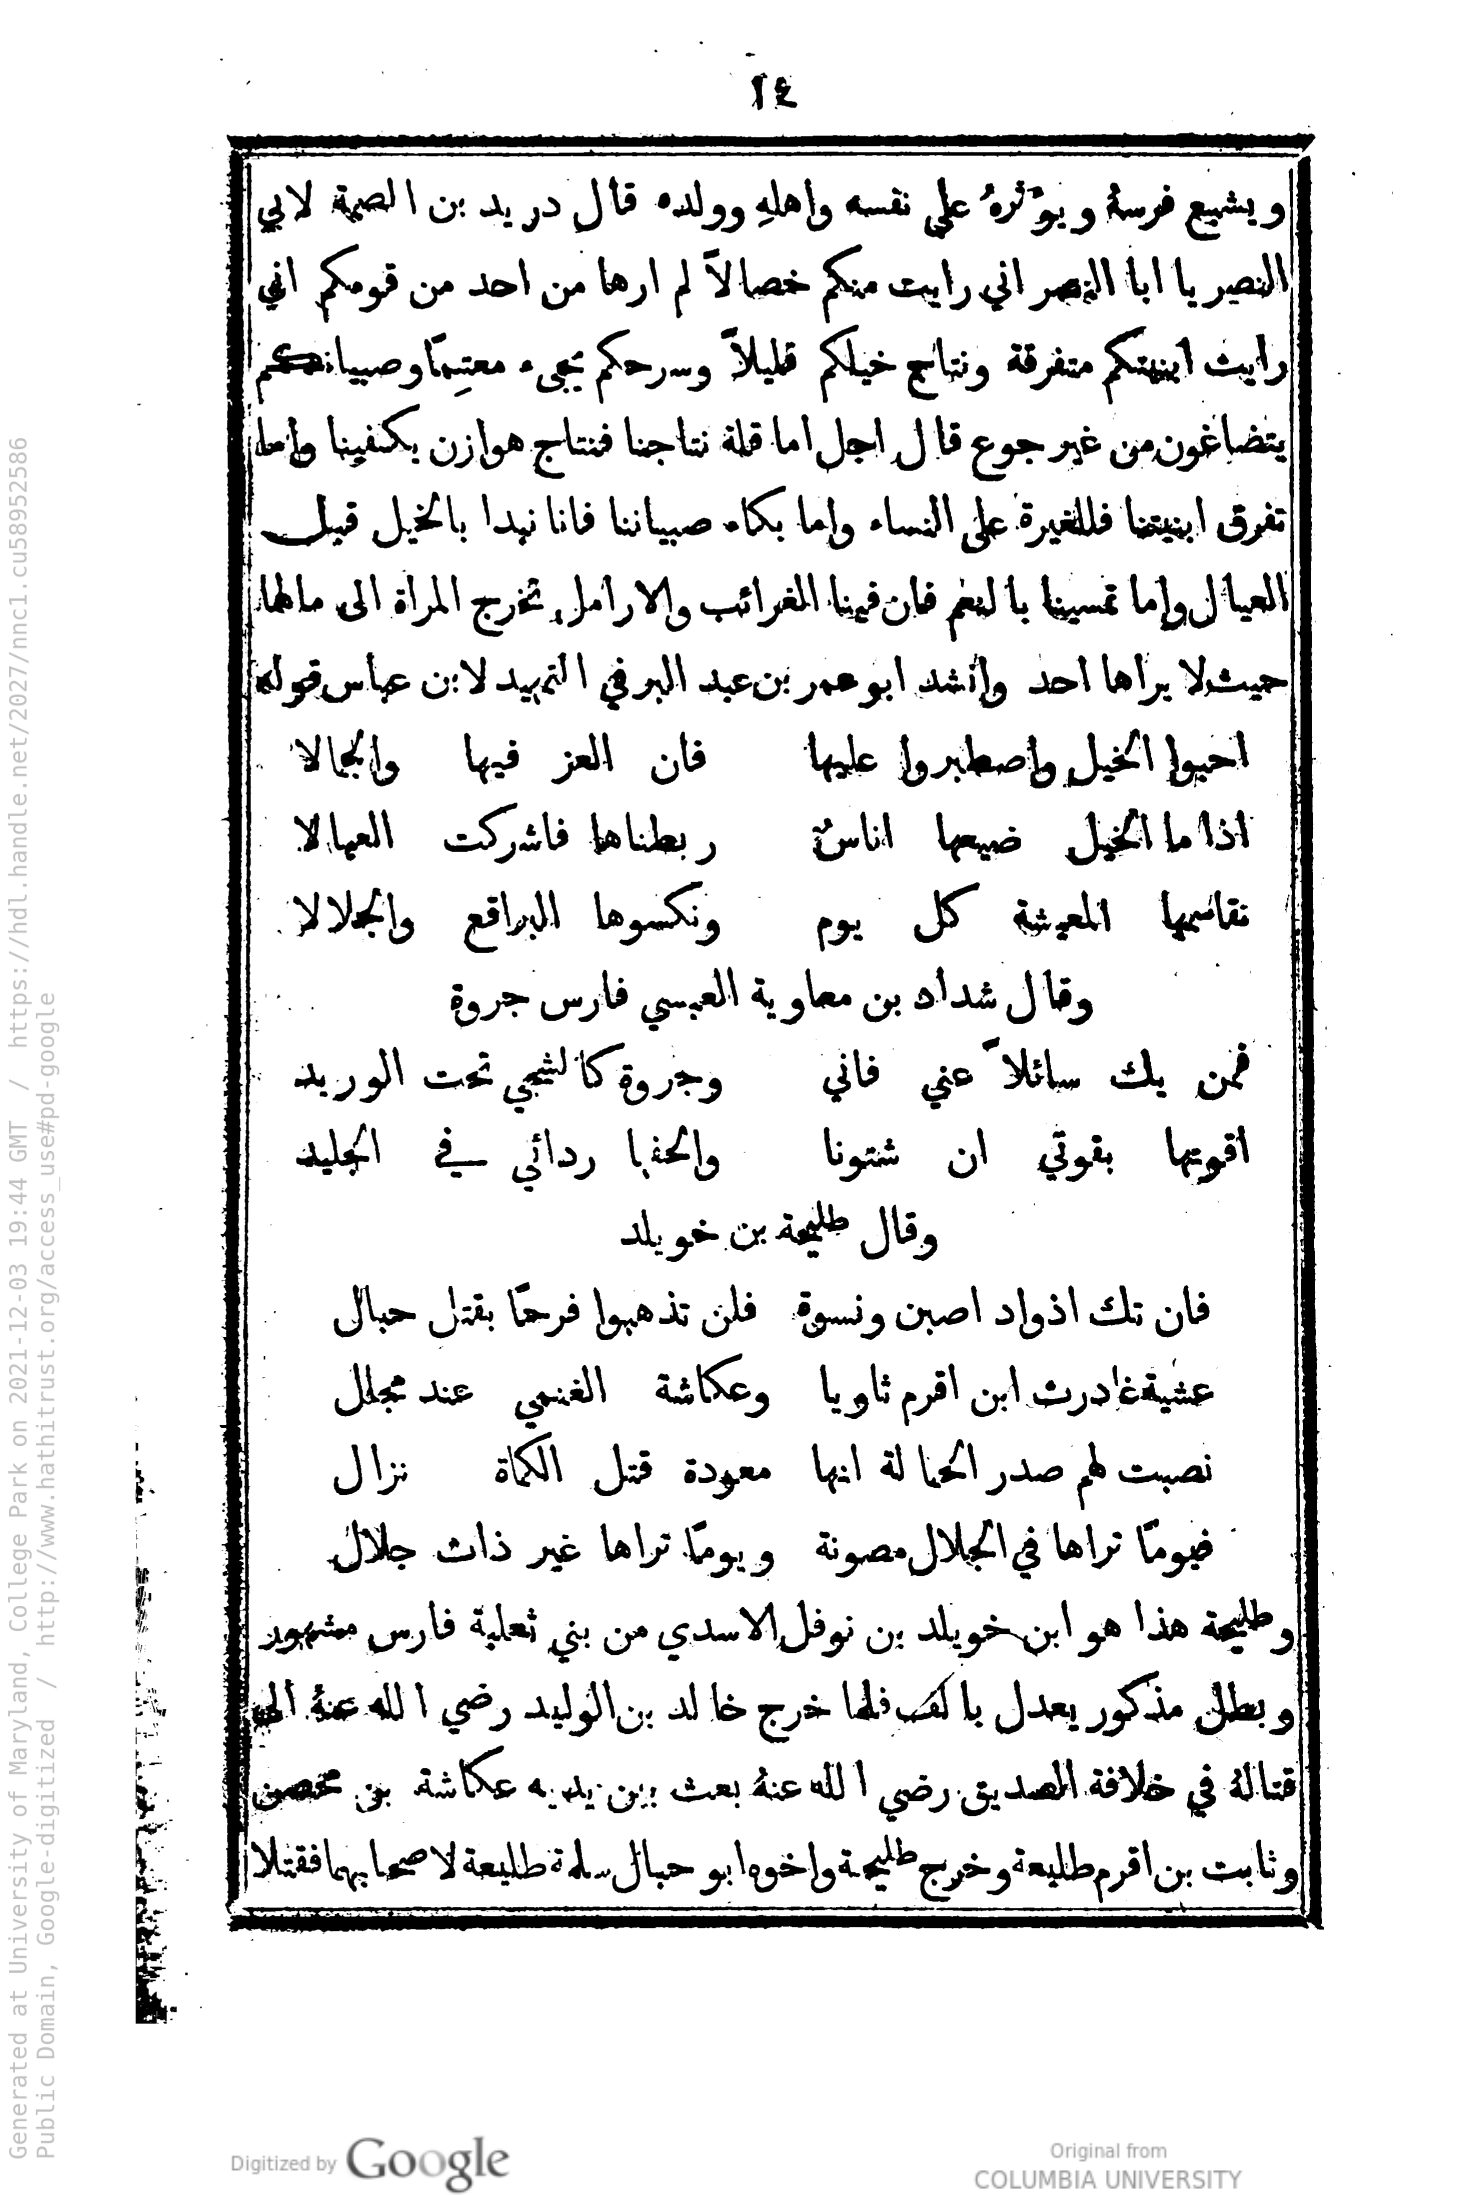 ١٤
ويشبع فرسهُ ويوْثرهُ على نفسه واهلهِ وولده قال دريد بن الصمة لابي
النصير يا ابا النصر اني رايت منكم خصالاً لم ارها من احد من قومكم اني
رايت ابنيتكم متفرقة ونتاج خيلكم قليلاً وسرحكم يجيء معتِمًا وصبيانكم
يتضاغون من غير جوع قال اجل اما قلة نتاجنا فنتاج هوازن يكفينا واما
تفرق ابنيتنا فللغيرة على النساء واما بكاء صبياننا فانا نبدا بالخيل قبل
العيال وإما تمسينا بالنعم فان فينا الغرائب والارامل تخرج المراة الى مالها
حيث لا يراها احد وانشد ابو عمر بن عبد البر في التمهيد لابن عباس قوله
احبوا الخيل واصطبروا عليها فان العز فيها والجمالا
اذا ما الخيل ضيعها اناسٌ ربطناها فاشركت العيالا
نقاسمها المعيشة كل يوم ونكسوها البراقع والجلالا
وقال شداد بن معاوية العبسي فارس جروة
فمن يك سائلاً عني فاني وجروة كالشجي تحت الوريد
اقوتها بقوتي ان شتونا والحفها ردائي في الجليد
وقال طليحة بن خويلد
فان تك اذواد اصبن ونسوة فلن تذهبوا فرحًا بقتل حبال
عشية غادرت ابن اقرم ثاويا وعكاشة الغنمي عند مجلل
نصبت لهم صدر الحمالة انها معودة قتل الكماة نزال
فيومًا تراها في الجلال مصونة ويومًا تراها غير ذات جلال
وطليحة هذا هو ابن خويلد بن نوفل الاسدي من بني ثعلبة فارس مشهور
وبطل مذكور يعدل بالف فلما خرج خالد بن الوليد رضي الله عنهُ الى
قتالهُ في خلافة الصديق رضي الله عنهُ بعث بين يديه عكاشة بن محصن
وثابت بن اقرم طليعة وخرج طليحة واخوه ابو حبال سلمة طليعة لاصحابهما فقتلا
Generated at University of Maryland, College Park on 2021-12-03 19:44 GMT / https://hdl.handle.net/2027/nnc1.cu58952586
Public Domain, Google-digitized / http://www.hathitrust.org/access_use#pd-google
Digitized by Google
Original from
COLUMBIA UNIVERSITY